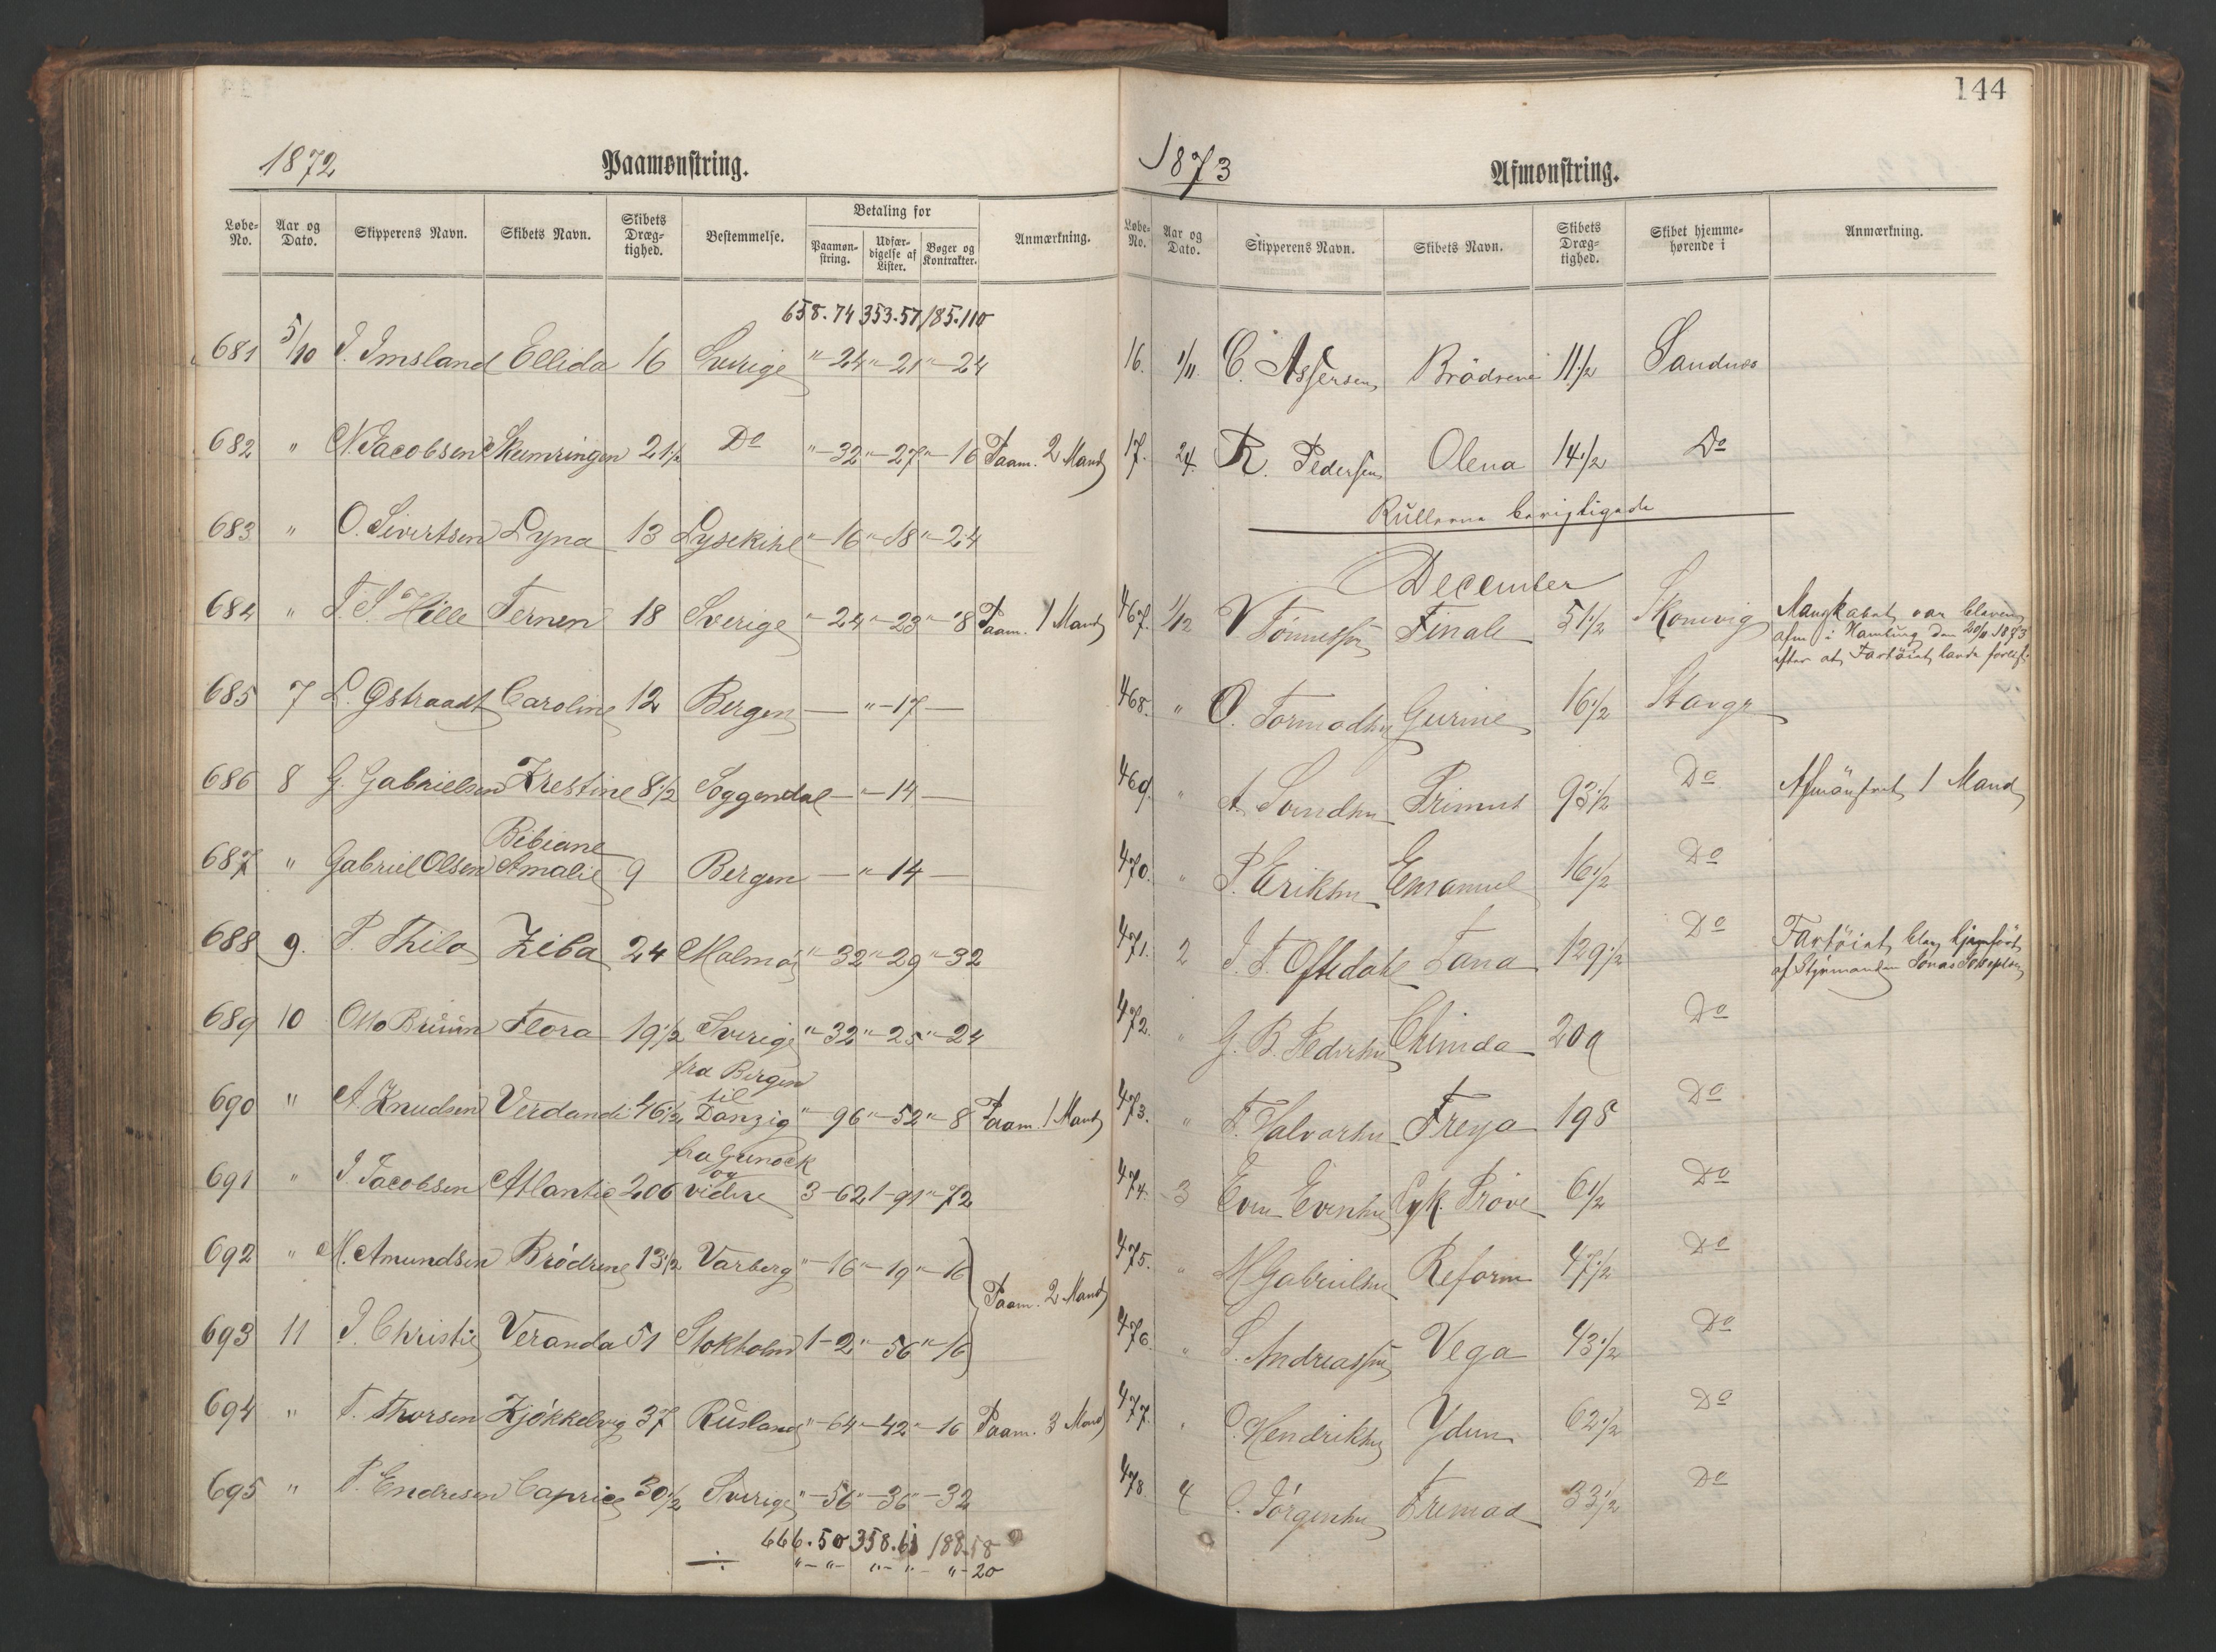 144
1872 Paamønstring.
Løbe-No. Aar og Dato. Skipperens Navn. Skibets Navn. Skibets Dræg-tighed. Bestemmelse. Betaling for Paamøn-string. Udfær-digelse af Lister. Bøger og Kontrakter. Anmærkning.
658.74 353.57 185.110
681 5/10 J. Imsland Ellida 16 Sverige "-24 "-21 "-24
682 " N. Jacobsen Skumringen 21 1/2 Do "-32 "-27 "-16 Paam. 2 Mand
683 " O. Sivertsen Dyna 13 Lysekihl "-16 "-18 "-24
684 " T. S. Hille Ternen 18 Sverige "-24 "-23 "-8 Paam. 1 Mand
685 7 L. Ostraadt Caroline 12 Bergen — "-17 —
686 8 G. Gabrielsen Krestine 8 1/2 Soggendal — "-14 —
Bibiane
687 " Gabriel Olsen Amalie 9 Bergen — "-14 —
688 9. P. Thilo Ziba 24 Malmø "-32 "-29 "-32
689 10 Otto Bruun Flora 19 1/2 Sverige "-32 "-25 "-24
fra Bergen
til
690 " A. Knudsen Verdandi 46 1/2 Danzig "-96 "-52 "-8 Paam. 1 Mand
fra Grenock
og
691 " J. Jacobsen Atlantic 206 videre 3-62 1-91 "-72
692 " M. Amundsen Brødrene 13 1/2 Varberg "-16 "-19 "-16
Paam. 2 Mand
693 11 J. Christie Veranda 51 Stokholm 1-2 "-56 "-16
694 " T. Thorsen Kjökkelvig 37 Rusland "-64 "-42 "-16 Paam. 3 Mand
695 " P. Endresen Caprice 30 1/2 Sverige "-56 "-36 "-32
666.50 358.61 188.58
÷ "-"- "-"- "-20
1873 Afmønstring.
Løbe-No. Aar og Dato. Skipperens Navn. Skibets Navn. Skibets Dræg-tighed. Skibet hjemme-hørende i Anmærkning.
16. 1/11. C. Assersen Brödrene 11 1/2 Sandnes
17. 24. R. Pedersen Olena 14 1/2 Do
Rullerne berigtigede
December
467. 1/12 V Tönnessen Finale 51 1/2 Skonevig Mandskabet var bleven
afm i Hamburg den 20/11 1873
efter at Fartöiet havde forlist.
468. " O. Tormodsen Gurine 16 1/2 Stavgr
469. " A. Svendsen Primus 93 1/2 Do Afmönstret 1 Mand
470. " P. Eriksen Emanuel 16 1/2 Do
471. 2 J. T. Oftedahl Tana 129 1/2 Do Fartöiet blev hjemfört
af Styrmanden Jonas Josephsen
472. " G. B. Pedersen 209 Do
473. " T. Halvorsen Freya 195 Do
474. 3 Even Evensen Lyk. Pröve 6 1/2 Do
475. " M Gabrielsen Reform 47 1/2 Do
476. " S. Andreassen Vega 43 1/2 Do
477. " O. Hendriksen Ydun 62 1/2 Do
478. 4 C. Jörgensen Fremad 33 1/2 Do